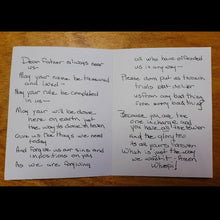 Dear Father always near
us
May your name be treasured
and loved –
May your rule be completed
in us –
May your will be done
here on earth just
the way its done in heaven
Give us the things we need
today
And forgive us our sins
and impositions on you
As we are forgiving
all who have offended
us in any way –
Please don't put us through
trials but deliver
us from any bad thing
from every bad thing!
Because you are the
one in charge and
you have all the power
and the glory too
its all yours forever
Which is just the way
we want it – Amen